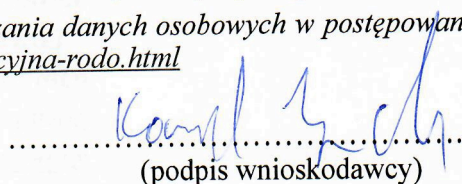 zania danych osobowych w postępowan
cyjna-rodo.html
(podpis wnioskodawcy)